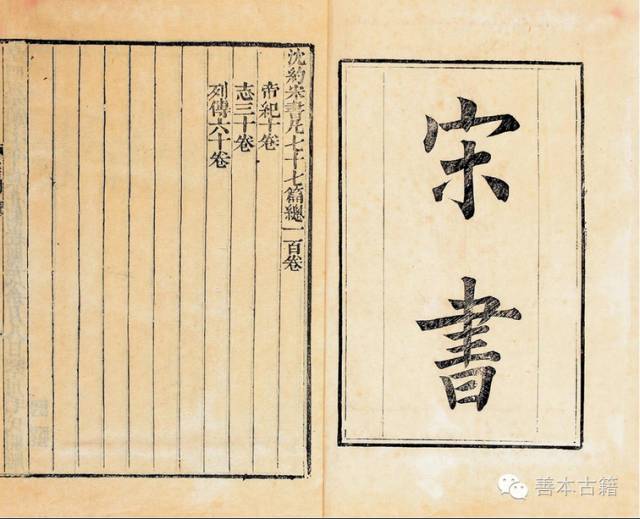 宋書
沈約宋書凡七十七篇總一百卷
帝紀十卷
志三十卷
列傳六十卷
善本古籍